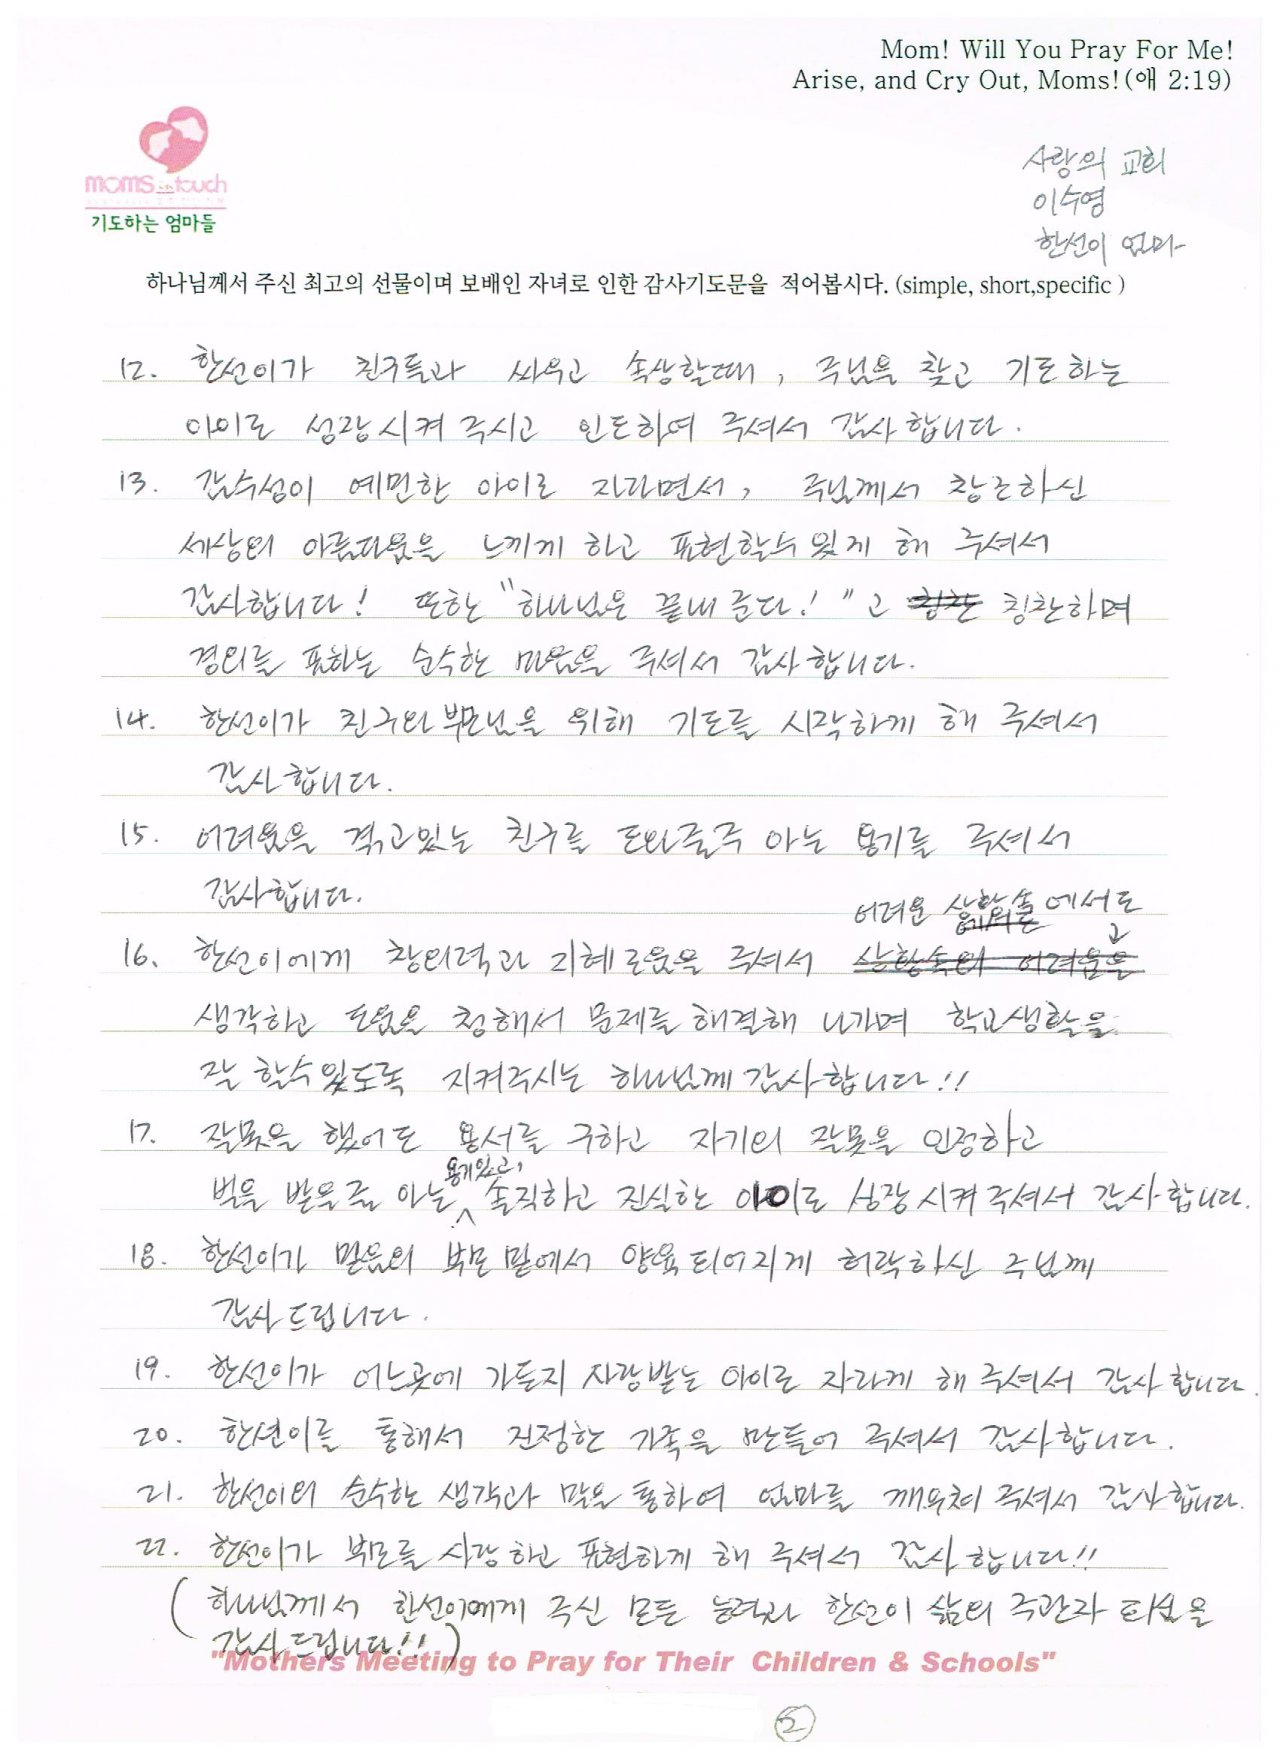 Mom! Will You Pray For Me!
Arise, and Cry Out, Moms!(애 2:19)
moms in touch
기도하는 엄마들
사랑의 교회
이수영
한선이 엄마
하나님께서 주신 최고의 선물이며 보배인 자녀로 인한 감사기도문을 적어봅시다. (simple, short,specific )
12. 한선이가 친구들과 싸우고 속상할때, 주님을 찾고 기도하는
아이로 성장시켜 주시고 인도하여 주셔서 감사합니다.
13. 감수성이 예민한 아이로 자라면서, 주님께서 창조하신
세상의 아름다움을 느끼게 하고 표현할수 있게 해 주셔서
감사합니다! 또한 "하나님은 끝내 준다!"고 칭찬 칭찬하며
경외를 표하는 순수한 마음을 주셔서 감사합니다.
14. 한선이가 친구와 부모님을 위해 기도를 시작하게 해 주셔서
감사합니다.
15. 어려움을 겪고있는 친구를 도와줄주 아는 용기를 주셔서
감사합니다.
어려운 상황속에서도
16. 한선이에게 창의력과 지혜로움을 주셔서 상황속의 어려움을
생각하고 도움을 청해서 문제를 해결해 나가며 학교생활을
잘 할수있도록 지켜주시는 하나님께 감사합니다!!
17. 잘못을 했어도 용서를 구하고 자기의 잘못을 인정하고
용기있고,
벌을 받을줄 아는 솔직하고 진실한 아이로 성장시켜 주셔서 감사합니다.
18. 한선이가 믿음의 부모 밑에서 양육되어지게 허락하신 주님께
감사드립니다.
19. 한선이가 어느곳에 가든지 사랑받는 아이로 자라게 해 주셔서 감사합니다.
20. 한션이를 통해서 진정한 가족을 만들어 주셔서 감사합니다.
21. 한선이의 순수한 생각과 말을 통하여 엄마를 깨우쳐 주셔서 감사합니다.
22. 한선이가 부모를 사랑하고 표현하게 해 주셔서 감사합니다!!
(하나님께서 한선이에게 주신 모든 능력과 한선이 삶의 주관자 되심을
감사드립니다!!)
"Mothers Meeting to Pray for Their Children & Schools"
2